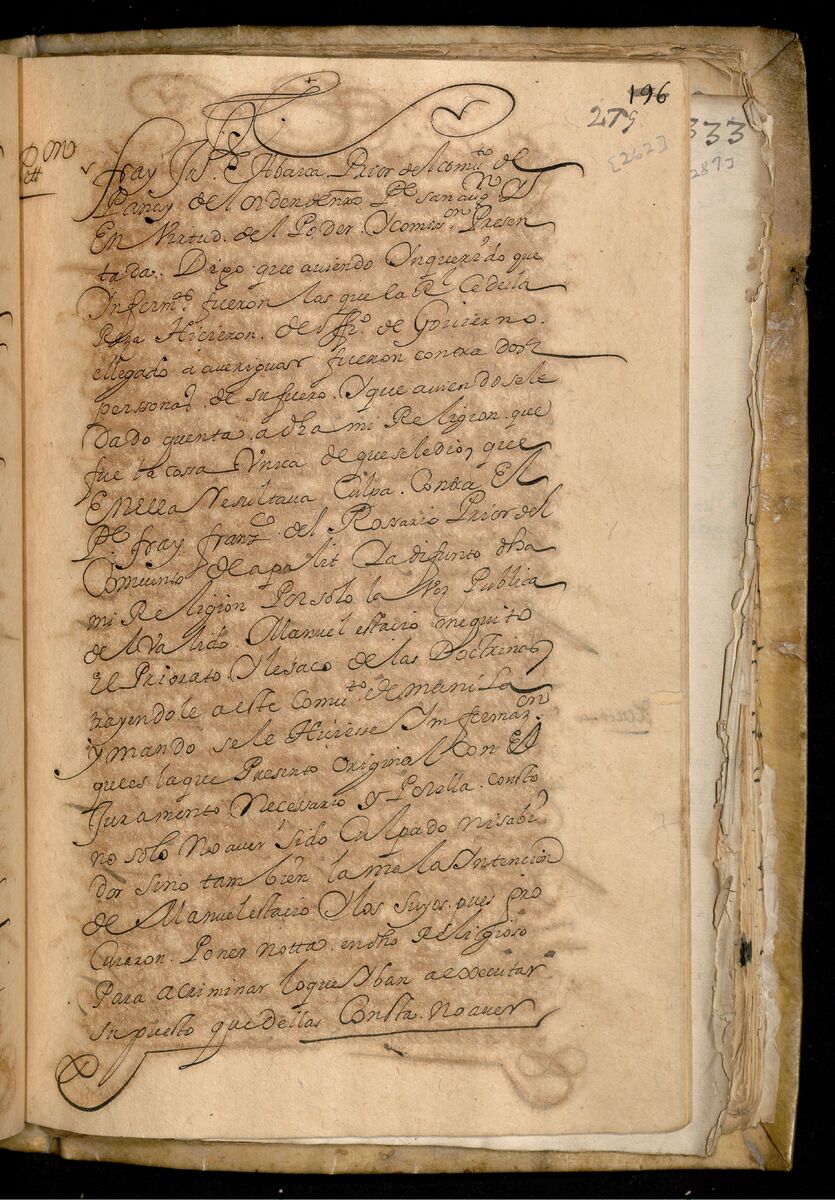 196
279
333
[262]
287]
Pett.on
fray Ju.o de Abarca Prior del Comu.to de
Panay del orden de nro P.e san aug.n Y
En Virtud del Poder Y comis.on Presen
tada. Dijo que auiendo Ynquerido que
Informes fueron las que la R.l Cedula
Rza Hicieron del Sr.o de Gouierno.
ellegado a aueriguar fueron contra dos
personas de su fuero. Y que auiendosele
Dado quenta a dha mi Religion que
fue la cossa Vnica de que seledio, que
En ella Resultaua Culpa Contra El
P.e fray fran.co del Rossario Prior del
Comuento de apalit Ya difunto dha
mi Religion Por solo la Vos Publica
del Valido Manuel estacio mequito
El Priorato Y lesaco de las Doctrinas
trayendole a este Comu.to de manila
y mando sele Hiciesse Ymformaz.on
que es la que Presento Original Con El
Juramento Necessario Y Por ella consto
no solo No auer sido Culpado ni sabi
dor sino tambien la mala Intencion
de Manuel estacio Y los suyos pues pro
curaron Poner Notta en dho Religioso
Para a criminar loque Yban a executar
supuesto que dellas Consta No auer